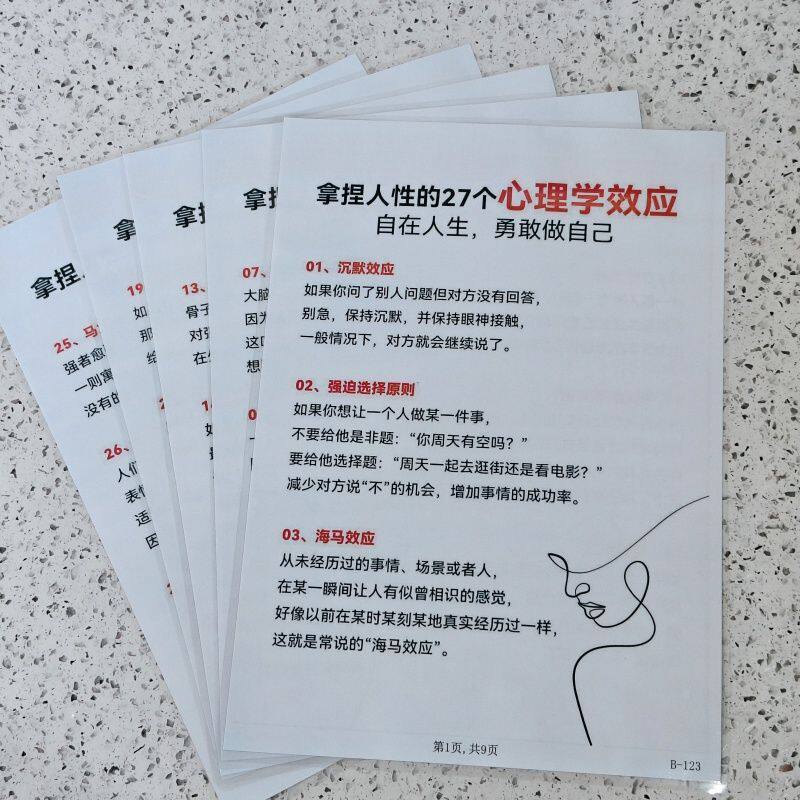 拿捏人性的27个心理学效应
自在人生，勇敢做自己
01、沉默效应
如果你问了别人问题但对方没有回答，
别急，保持沉默，并保持眼神接触，
一般情况下，对方就会继续说了。
02、强迫选择原则
如果你想让一个人做某一件事，
不要给他是非题：“你周天有空吗？”
要给他选择题：“周天一起去逛街还是看电影？”
减少对方说“不”的机会，增加事情的成功率。
03、海马效应
从未经历过的事情、场景或者人，
在某一瞬间让人有似曾相识的感觉，
好像以前在某时某刻某地真实经历过一样，
这就是常说的“海马效应”。
第1页,共9页
B-123
拿
07、
大脑
因为
这
想
拿捏
13、
骨子
对
在
拿
19
如
那
拿捏
25、马
强者愈
一则寓
没有的
26、
人们
表情
适
因